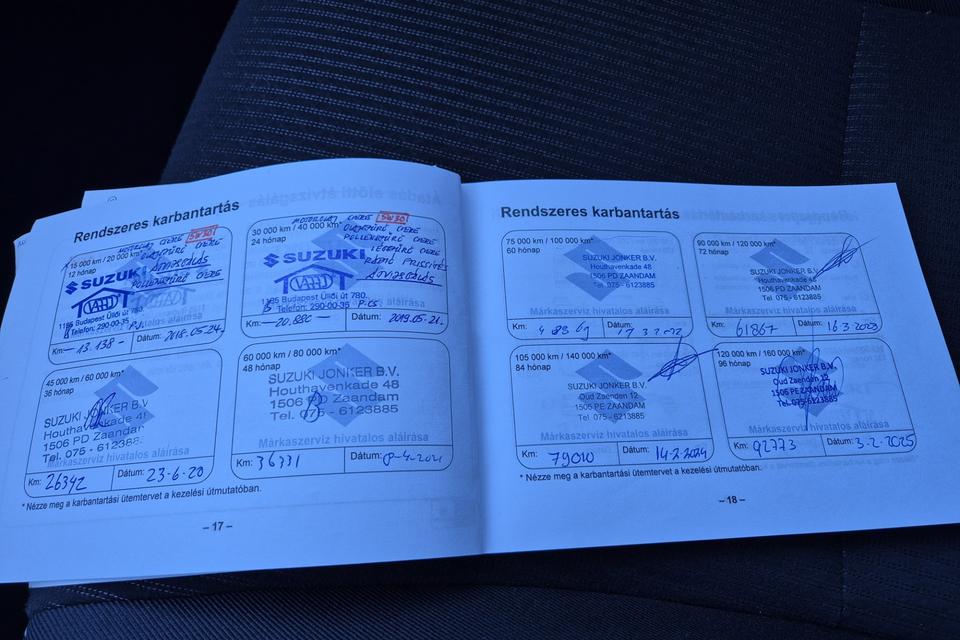 Rendszeres karbantartás
15 000 km / 20 000 km*
12 hónap
MOTOROLAJ CSERE 5W30
OLAJSZŰRŐ CSERE
ÁTVIZSGÁLÁS
POLLENSZŰRŐ CSERE
SUZUKI
1195 Budapest Üllői út 780.
Telefon: 290-00-35
Km: - 13.138 -
Dátum: 2018.05.24.
30 000 km / 40 000 km*
24 hónap
MOTOROLAJ CSERE 5W30
OLAJSZŰRŐ CSERE
POLLENSZŰRŐ CSERE
LÉGSZŰRŐ CSERE
ÁTVIZSGÁLÁS
SUZUKI
Budapest Üllői út 780.
Telefon: 290-00-35
hivatalos aláírása
Km: - 20.880 -
Dátum: 2019.05.21.
45 000 km / 60 000 km*
36 hónap
SUZUKI JONKER B.V.
Houthavenkade 48
1506 PD Zaandam
Márkaszerviz hivatalos aláírása
Km: 26342
Dátum: 23-6-20
60 000 km / 80 000 km*
48 hónap
SUZUKI JONKER B.V.
Houthavenkade 48
1506 PD Zaandam
Tel. 075 - 6123885
Márkaszerviz hivatalos aláírása
Km: 36331
Dátum: 8-4-2021
* Nézze meg a karbantartási ütemtervet a kezelési útmutatóban.
– 17 –
Rendszeres karbantartás
75 000 km / 100 000 km*
60 hónap
SUZUKI JONKER B.V.
Houthavenkade 48
1506 PD ZAANDAM
Tel. 075 - 6123885
Márkaszerviz hivatalos aláírása
Km:
Dátum:
90 000 km / 120 000 km*
72 hónap
SUZUKI JONKER B.V.
Houthavenkade 48
1506 PD ZAANDAM
Tel. 075 - 6123885
Márkaszerviz hivatalos aláírása
Km: 61867
Dátum: 16 3 2023
105 000 km / 140 000 km*
84 hónap
SUZUKI JONKER B.V.
Oud Zaenden 12
1506 PE ZAANDAM
Tel. 075 - 6123885
Márkaszerviz hivatalos aláírása
Km: 79010
Dátum: 14-2-2024
120 000 km / 160 000 km*
96 hónap
SUZUKI JONKER B.V.
Oud Zaenden 12
1506 PE ZAANDAM
Tel. 075-6123885
Márkaszerviz hivatalos aláírása
Km: 92773
Dátum: 3-2-2025
* Nézze meg a karbantartási ütemtervet a kezelési útmutatóban.
– 18 –